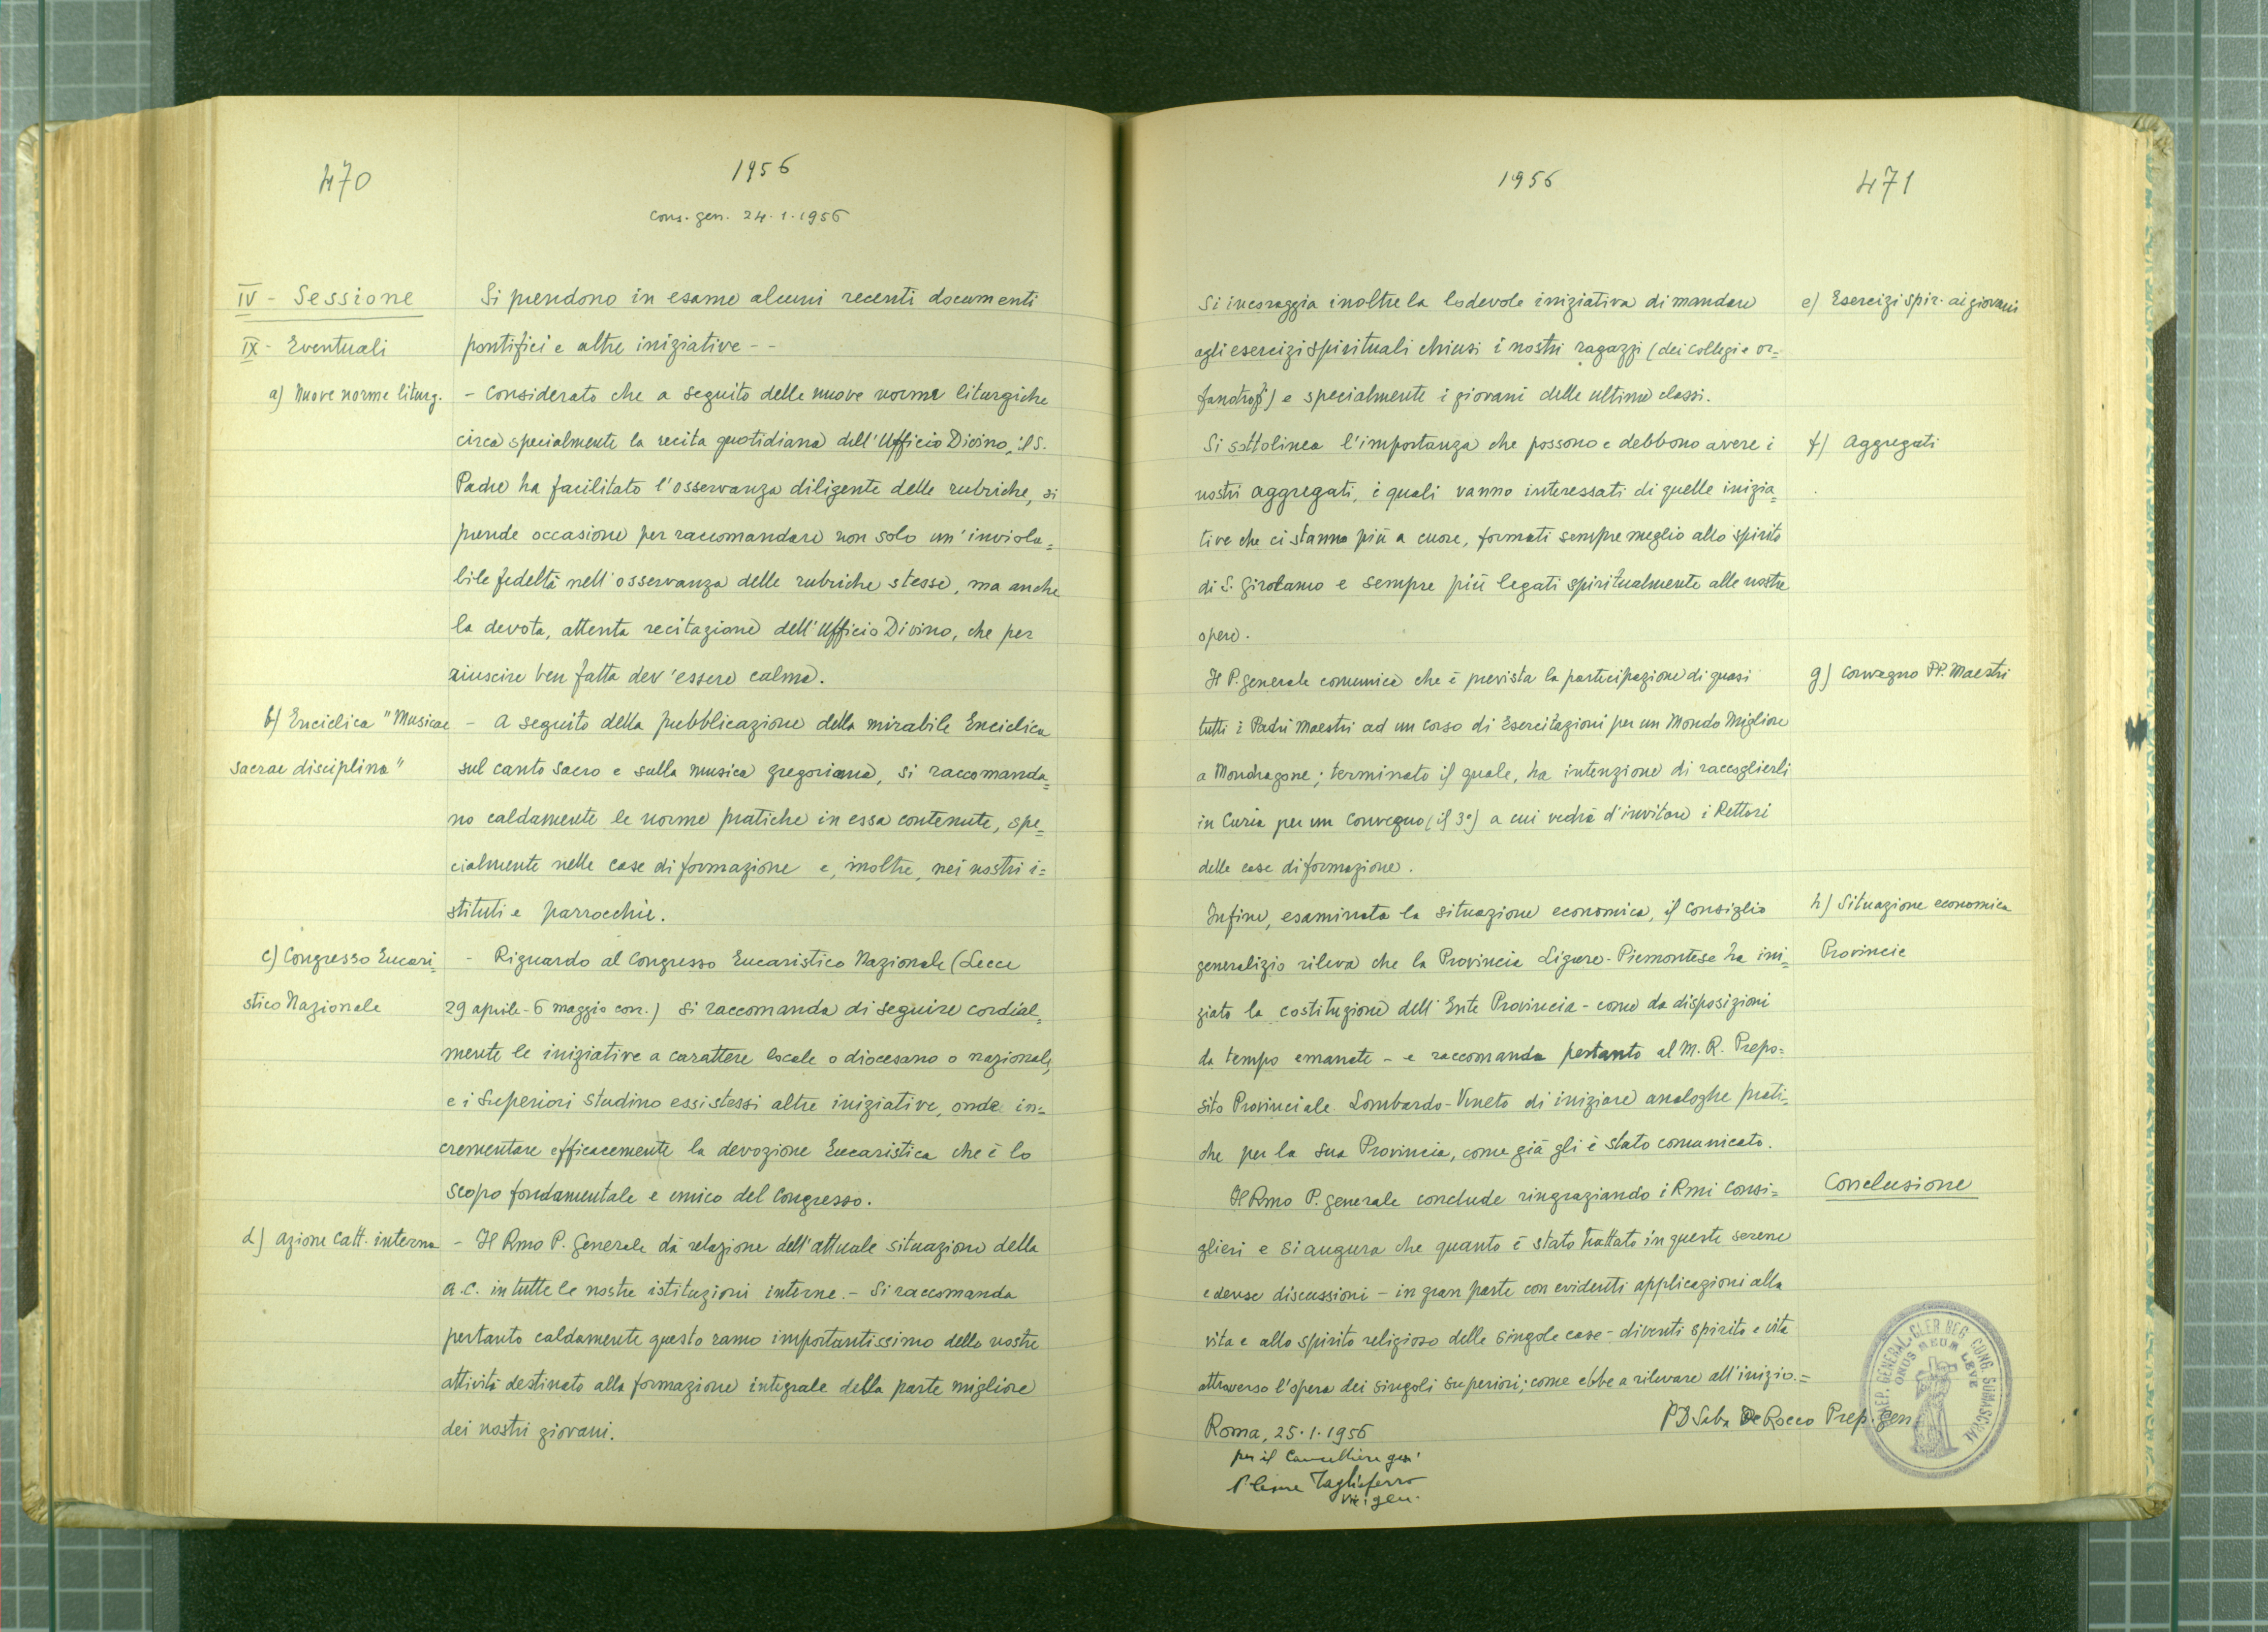 470
1956
cons. gen. 24.1.1956
IV - Sessione
Si prendono in esame alcuni recenti documenti
IX - Eventuali
pontifici e altre iniziative - -
a) Nuove norme liturg.
- Considerato che a seguito delle nuove norme liturgiche
circa specialmente la recita quotidiana dell'Ufficio Divino, il S.
Padre ha facilitato l'osservanza diligente delle rubriche, si
prende occasione per raccomandare non solo un'inviola=
bile fedeltà nell'osservanza delle rubriche stesse, ma anche
la devota, attenta recitazione dell'Ufficio Divino, che per
riuscire ben fatta dev'essere calma.
b) Enciclica "Musicae
sacrae disciplina"
- A seguito della pubblicazione della mirabile Enciclica
sul canto sacro e sulla musica gregoriana, si raccomanda=
no caldamente le norme pratiche in essa contenute, spe=
cialmente nelle case di formazione e, inoltre, nei nostri i=
stituti e parrocchie.
c) Congresso Eucari=
stico Nazionale
- Riguardo al Congresso Eucaristico Nazionale (Lecce
29 aprile - 6 maggio corr.) si raccomanda di seguire cordial=
mente le iniziative a carattere locale o diocesano o nazionale,
e i Superiori studino essi stessi altre iniziative, onde in=
crementare efficacemente la devozione Eucaristica che è lo
scopo fondamentale e unico del Congresso.
d) Azione Catt. interna
- Il Rmo P. Generale dà relazione dell'attuale situazione della
A.C. in tutte le nostre istituzioni interne. - Si raccomanda
pertanto caldamente questo ramo importantissimo delle nostre
attività destinato alla formazione integrale della parte migliore
dei nostri giovani.
1956
471
Si incoraggia inoltre la lodevole iniziativa di mandare
e) Esercizi spir. ai giovani
agli esercizi spirituali chiusi i nostri ragazzi (dei collegi e or=
fanotrofi) e specialmente i giovani delle ultime classi.
Si sottolinea l'importanza che possono e debbono avere i
f) Aggregati
nostri aggregati, i quali vanno interessati di quelle inizia=
tive che ci stanno più a cuore, formati sempre meglio allo spirito
di S. Girolamo e sempre più legati spiritualmente alle nostre
opere.
Il P. Generale comunica che è prevista la partecipazione di quasi
g) Convegno PP. Maestri
tutti i Padri Maestri ad un corso di Esercitazioni per un Mondo Migliore
a Mondragone; terminato il quale, ha intenzione di raccoglierli
in Curia per un Convegno (il 3°) a cui vedrà d'invitare i Rettori
delle case di formazione.
Infine, esaminata la situazione economica, il Consiglio
h) Situazione economica
Provincie
generalizio rileva che la Provincia Ligure-Piemontese ha ini=
ziato la costituzione dell'Ente Provincia - come da disposizioni
da tempo emanate - e raccomanda pertanto al M. R. Prepo=
sito Provinciale Lombardo-Veneto di iniziare analoghe prati=
che per la sua Provincia, come già gli è stato comunicato.
Conclusione
Il Rmo P. Generale conclude ringraziando i Rmi Consi=
glieri e si augura che quanto è stato trattato in queste serene
e dense discussioni - in gran parte con evidenti applicazioni alla
vita e allo spirito religioso delle singole case - diventi spirito e vita
attraverso l'opera dei singoli superiori; come ebbe a rilevare all'inizio.=
P D Saba De Rocco Prep. gen
Roma, 25.1.1956
per il Cancelliere gen.
Tagliaferro
Vic. gen.
PREP. GENERAL. CLER. REG. CONG. SOMASCHAE
ONUS MEUM LEVE